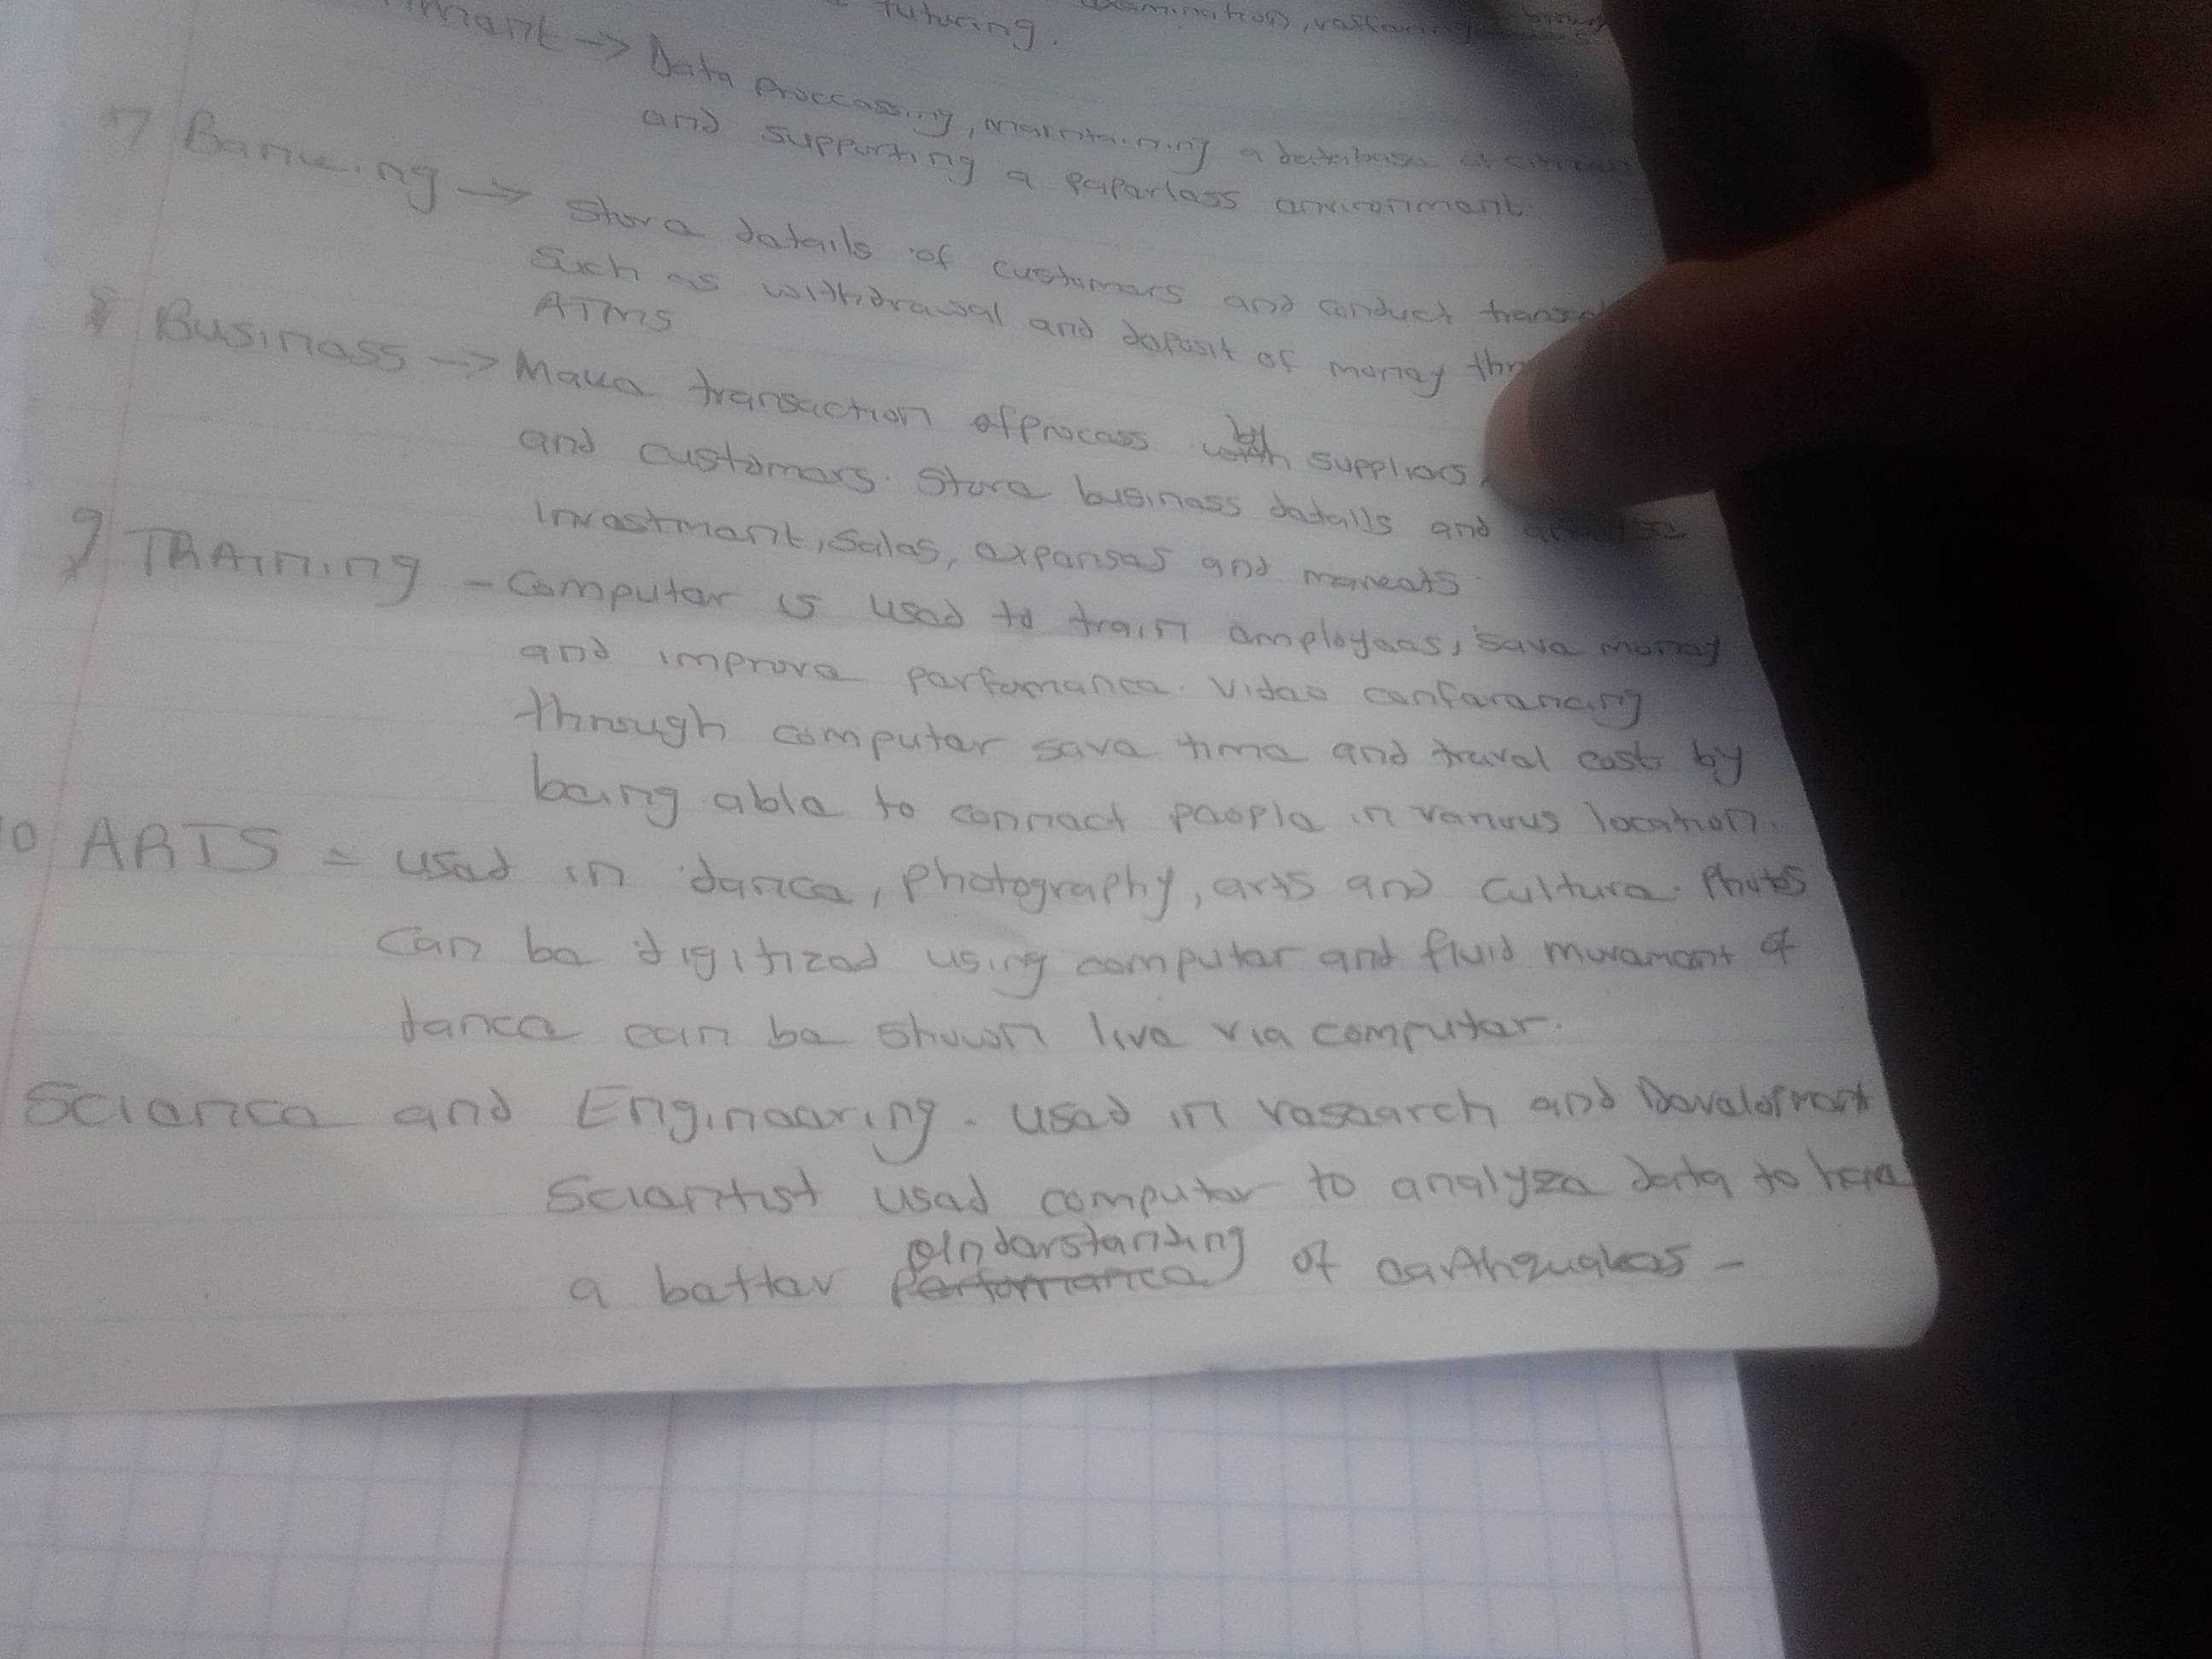 tutoring.
Data proccessing, maintaining a database
and supporting a paperless environment.
7 Banking → Store details of customers and conduct
such as withdrawal and deposit of money
ATMs
8 Business → Make transaction ofprocess by suppliers
and customers. Store business details and
Investment, sales, expenses and
9 TRAining - Computer is used to train employees, save money
and improve perfomance. Video conferencing
through computer save time and travel cost by
being able to connect people in various location.
10 ARTS = used in dance, photography, arts and culture. Photos
can be digitized using computer and fluid movement of
dance can be shown live via computer.
Science and Engineering - used in research and Development
Scientist used computer to analyze data to have
a better understanding of earthquakes -